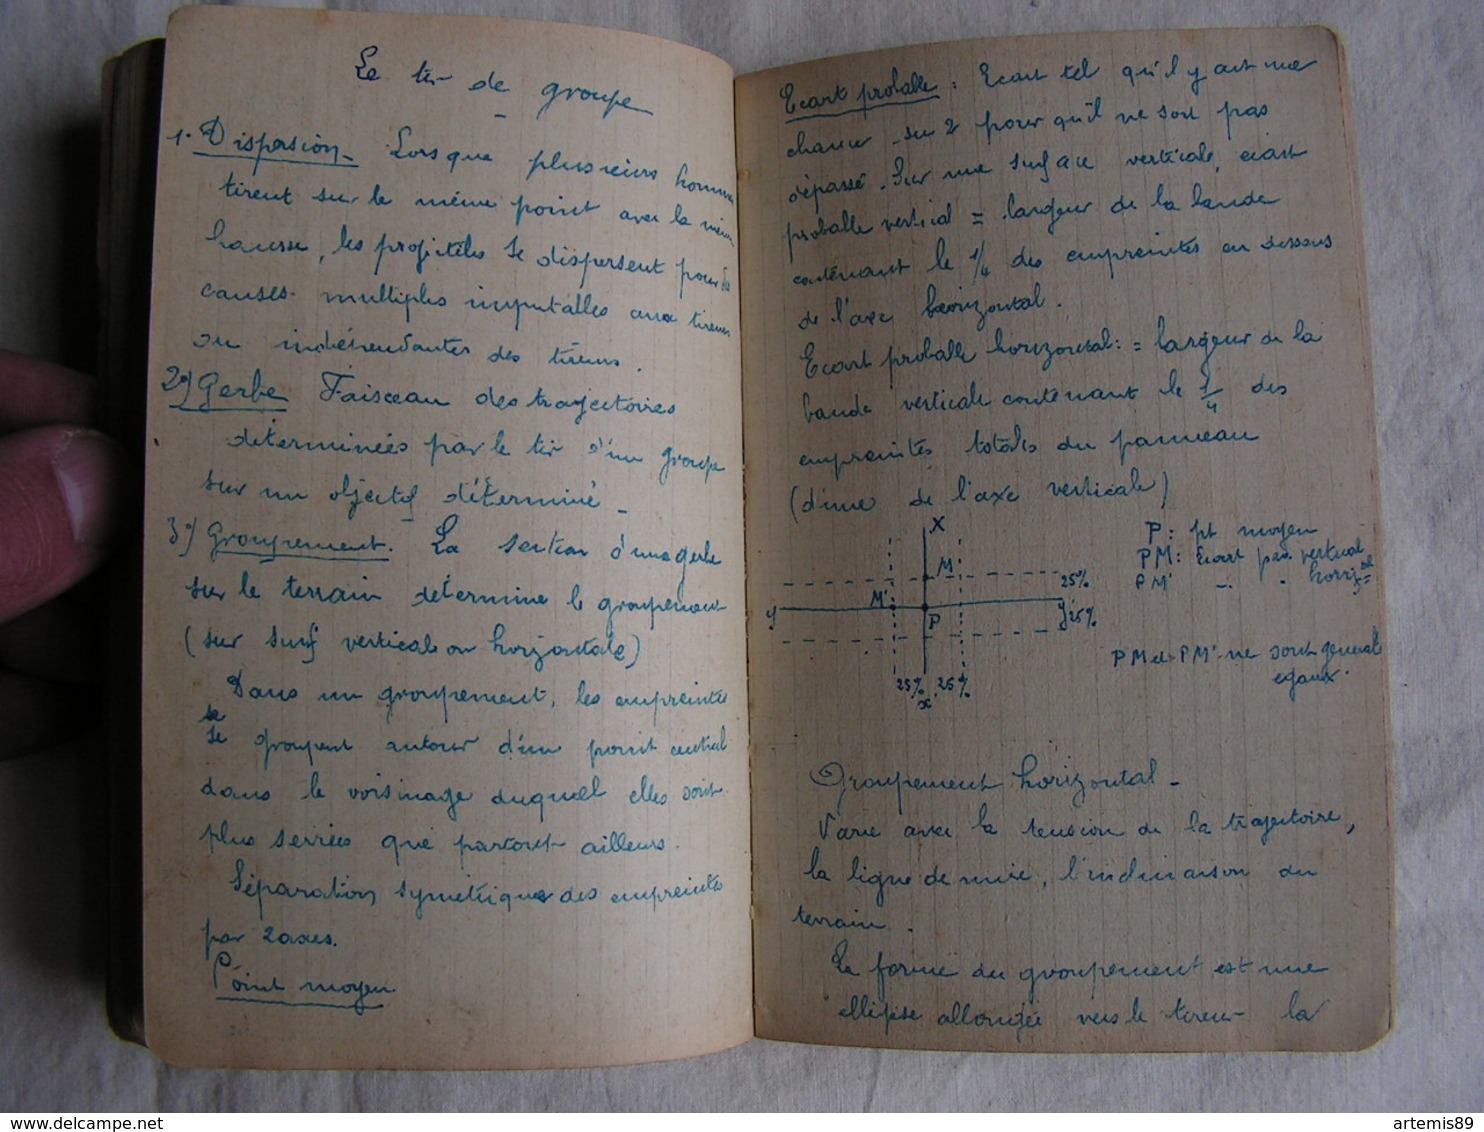 Le tir de groupe
1. Dispersion - Lorsque plusieurs hommes
tirent sur le même point avec la même
hausse, les projetiles se dispersent pour des
causes multiples imputables aux tireurs
ou indépendantes des tireurs.
2°) Gerbe Faisceau des trajectoires
déterminées par le tir d'un groupe
sur un objectif déterminé -
3°) Groupement. La section d'une gerbe
sur le terrain détermine le groupement
(sur surf verticale ou horizontale)
Dans un groupement, les empreintes
se
se groupent autour d'un point central
dans le voisinage duquel elles sont
plus serrées que partout ailleurs.
Séparation symétrique des empreintes
par 2 axes.
Point moyen
Ecart probable : Ecart tel qu'il y ait une
chance sur 2 pour qu'il ne soit pas
dépassé. Sur une surface verticale, écart
probable vertical = largeur de la bande
contenant le 1/4 des empreintes au dessous
de l'axe horizontal.
Ecart probable horizontal : = largeur de la
bande verticale contenant le 1/4 des
empreintes totales du panneau
(d'une de l'axe verticale)
X
M
M'
P
y
y'
25%
25%
25%
25%
x'
P : pt moyen
PM : Ecart prob. vertical
PM' — " horizal =
PM et PM' ne sont général
egaux.
Groupement horizontal -
Varie avec la tension de la trajectoire,
la ligne de mire, l'inclinaison du
terrain.
La forme du groupement est une
ellipse allongée vers le tireur la
artemis89